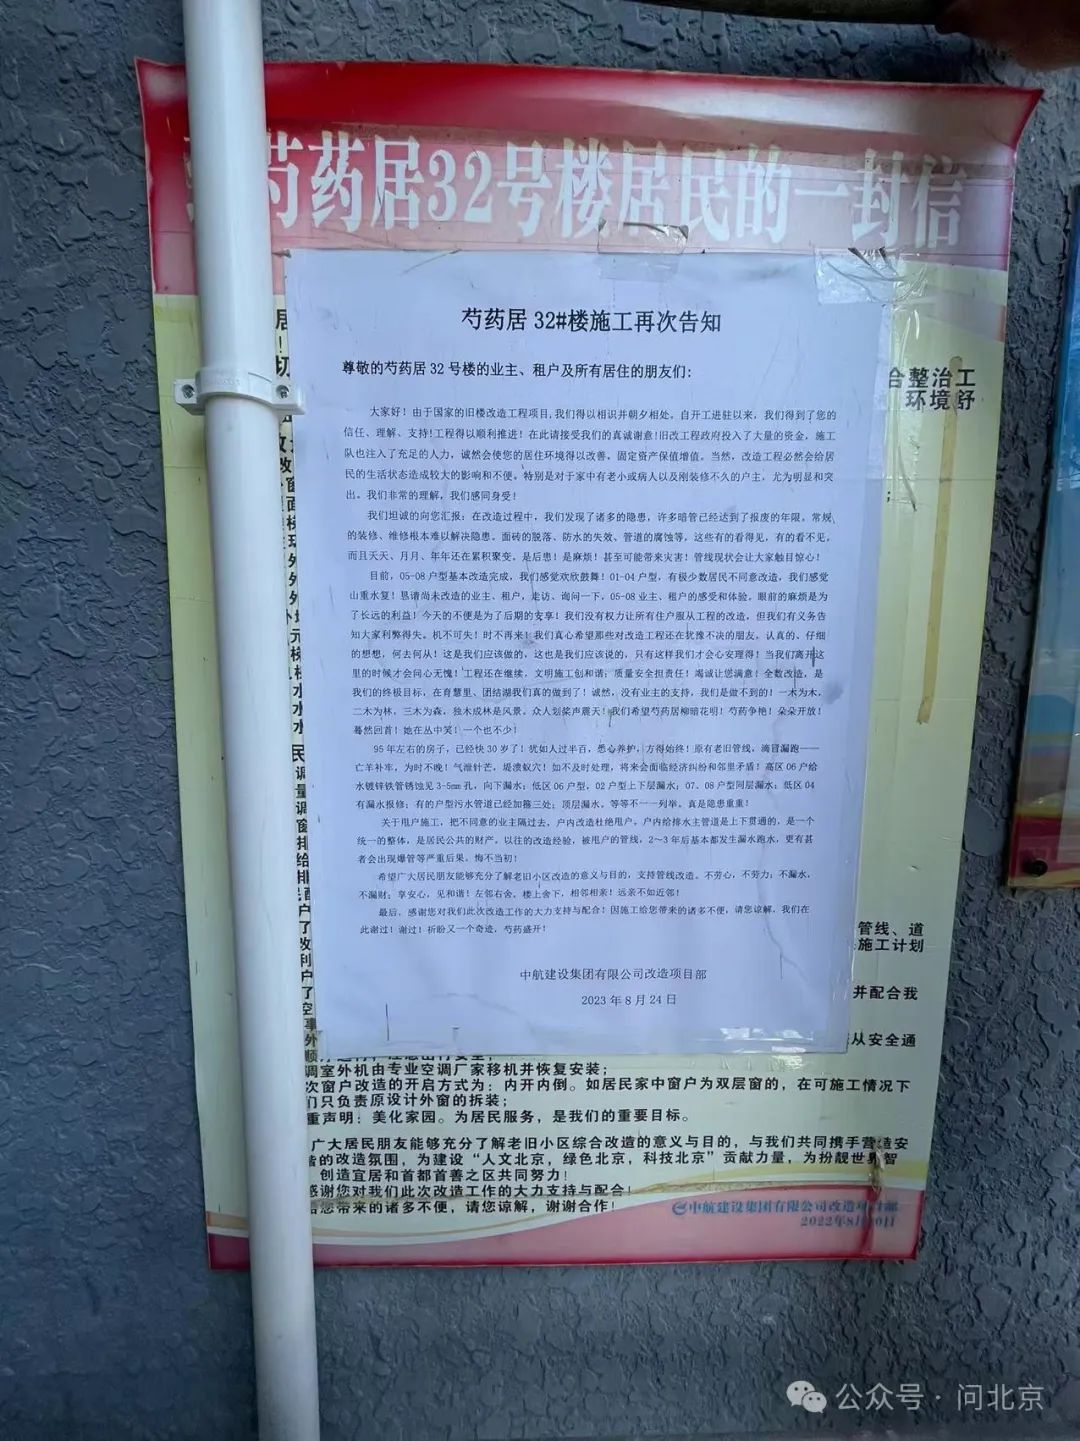 芍药居32号楼居民的一封信
芍药居 32#楼施工再次告知
尊敬的芍药居32号楼的业主、租户及所有居住的朋友们：
大家好！由于国家的旧楼改造工程项目,我们得以相识并朝夕相处。自开工进驻以来，我们得到了您的
信任、理解、支持!工程得以顺利推进！在此请接受我们的真诚谢意!旧改工程政府投入了大量的资金，施工
队也注入了充足的人力，诚然会使您的居住环境得以改善，固定资产保值增值。当然，改造工程必然会给居
民的生活状态造成较大的影响和不便。特别是对于家中有老小或病人以及刚装修不久的户主，尤为明显和突
出。我们非常的理解，我们感同身受！
我们坦诚的向您汇报：在改造过程中，我们发现了诸多的隐患，许多暗管已经达到了报废的年限，常规
的装修、维修根本难以解决隐患。面砖的脱落、防水的失效、管道的腐蚀等，这些有的看得见，有的看不见。
而且天天、月月、年年还在累积聚变。是后患！是麻烦！甚至可能带来灾害！管线现状会让大家触目惊心！
目前，05-08户型基本改造完成，我们感觉欢欣鼓舞！01-04户型，有极少数居民不同意改造，我们感觉
山重水复！恳请尚未改造的业主、租户，走访、询问一下，05-08业主、租户的感受和体验。眼前的麻烦是为
了长远的利益！今天的不便是为了后期的安享！我们没有权力让所有住户服从工程的改造，但我们有义务告
知大家利弊得失。机不可失！时不再来！我们真心希望那些对改造工程还在犹豫不决的朋友，认真的、仔细
的想想，何去何从！这是我们应该做的，这也是我们应该说的，只有这样我们才会心安理得！当我们离开这
里的时候才会问心无愧！工程还在继续，文明施工创和谐；质量安全担责任！竭诚让您满意！全数改造，是
我们的终极目标，在育慧里、团结湖我们真的做到了！诚然，没有业主的支持，我们是做不到的！一木为木，
二木为林，三木为森，独木成林是风景，众人划桨声震天！我们希望芍药居柳暗花明！芍药争艳！朵朵开放！
蓦然回首！她在丛中笑！一个也不少！
95年左右的房子，已经快30岁了！犹如人过半百，悉心养护，方得始终！原有老旧管线，滴冒漏跑——
亡羊补牢，为时不晚！气泄针芒，堤溃蚁穴！如不及时处理，将来会面临经济纠纷和邻里矛盾！高区06户给
水镀锌铁管锈蚀见3-5mm孔，向下漏水；低区06户型，02户型上下层漏水；07、08户型同层漏水；低区04
有漏水报修；有的户型污水管道已经加箍三处；顶层漏水，等等不一一列举。真是隐患重重！
关于甩户施工，把不同意的业主隔过去，户内改造杜绝甩户。户内给排水主管道是上下贯通的，是一个
统一的整体，是居民公共的财产。以往的改造经验，被甩户的管线，2～3年后基本都发生漏水跑水，更有甚
者会出现爆管等严重后果。悔不当初！
希望广大居民朋友能够充分了解老旧小区改造的意义与目的，支持管线改造。不劳心，不劳力；不漏水，
不漏财；享安心，见和谐！左邻右舍，楼上舍下，相邻相亲！远亲不如近邻！
最后，感谢您对我们此次改造工作的大力支持与配合！因施工给您带来的诸多不便，请您谅解，我们在
此谢过！谢过！祈盼又一个奇迹，芍药盛开！
中航建设集团有限公司改造项目部
2023年8月24日
合整治工
环境舒
管线、道
施工计划
并配合我
从安全通
调室外机由专业空调厂家移机并恢复安装；
次窗户改造的开启方式为：内开内倒。如居民家中窗户为双层窗的，在可施工情况下
们只负责原设计外窗的拆装；
重声明：美化家园。为居民服务，是我们的重要目标。
广大居民朋友能够充分了解老旧小区综合改造的意义与目的，与我们共同携手营造安
谐的改造氛围，为建设“人文北京，绿色北京，科技北京”贡献力量，为扮靓世界智
创造宜居和首都首善之区共同努力！
感谢您对我们此次改造工作的大力支持与配合！
给您带来的诸多不便，请您谅解，谢谢合作！
中航建设集团有限公司改造项目部
2022年8月
公众号·问北京